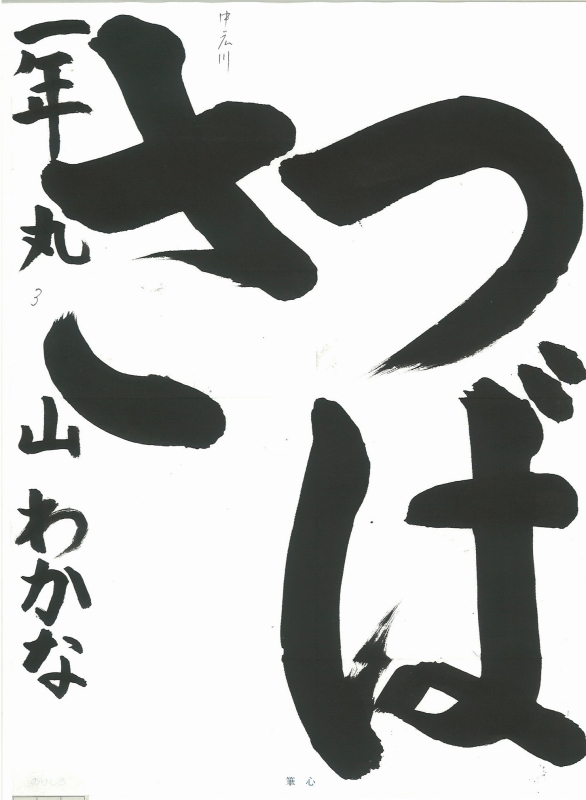 つば
さ
中広川
一年 丸山 わかな
3
筆心